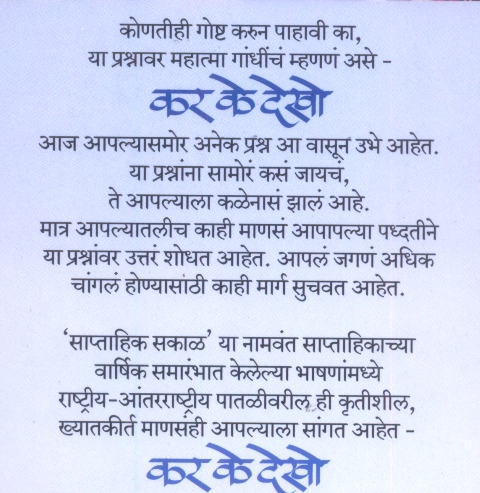 कोणतीही गोष्ट करुन पाहावी का,
या प्रश्नावर महात्मा गांधींचं म्हणणं असे -
कर के देखो
आज आपल्यासमोर अनेक प्रश्न आ वासून उभे आहेत.
या प्रश्नांना सामोरं कसं जायचं,
ते आपल्याला कळेनासं झालं आहे.
मात्र आपल्यातलीच काही माणसं आपापल्या पध्दतीने
या प्रश्नांवर उत्तरं शोधत आहेत. आपलं जगणं अधिक
चांगलं होण्यासाठी काही मार्ग सुचवत आहेत.
‘साप्ताहिक सकाळ’ या नामवंत साप्ताहिकाच्या
वार्षिक समारंभात केलेल्या भाषणांमध्ये
राष्ट्रीय-आंतरराष्ट्रीय पातळीवरील ही कृतीशील,
ख्यातकीर्त माणसंही आपल्याला सांगत आहेत -
कर के देखो